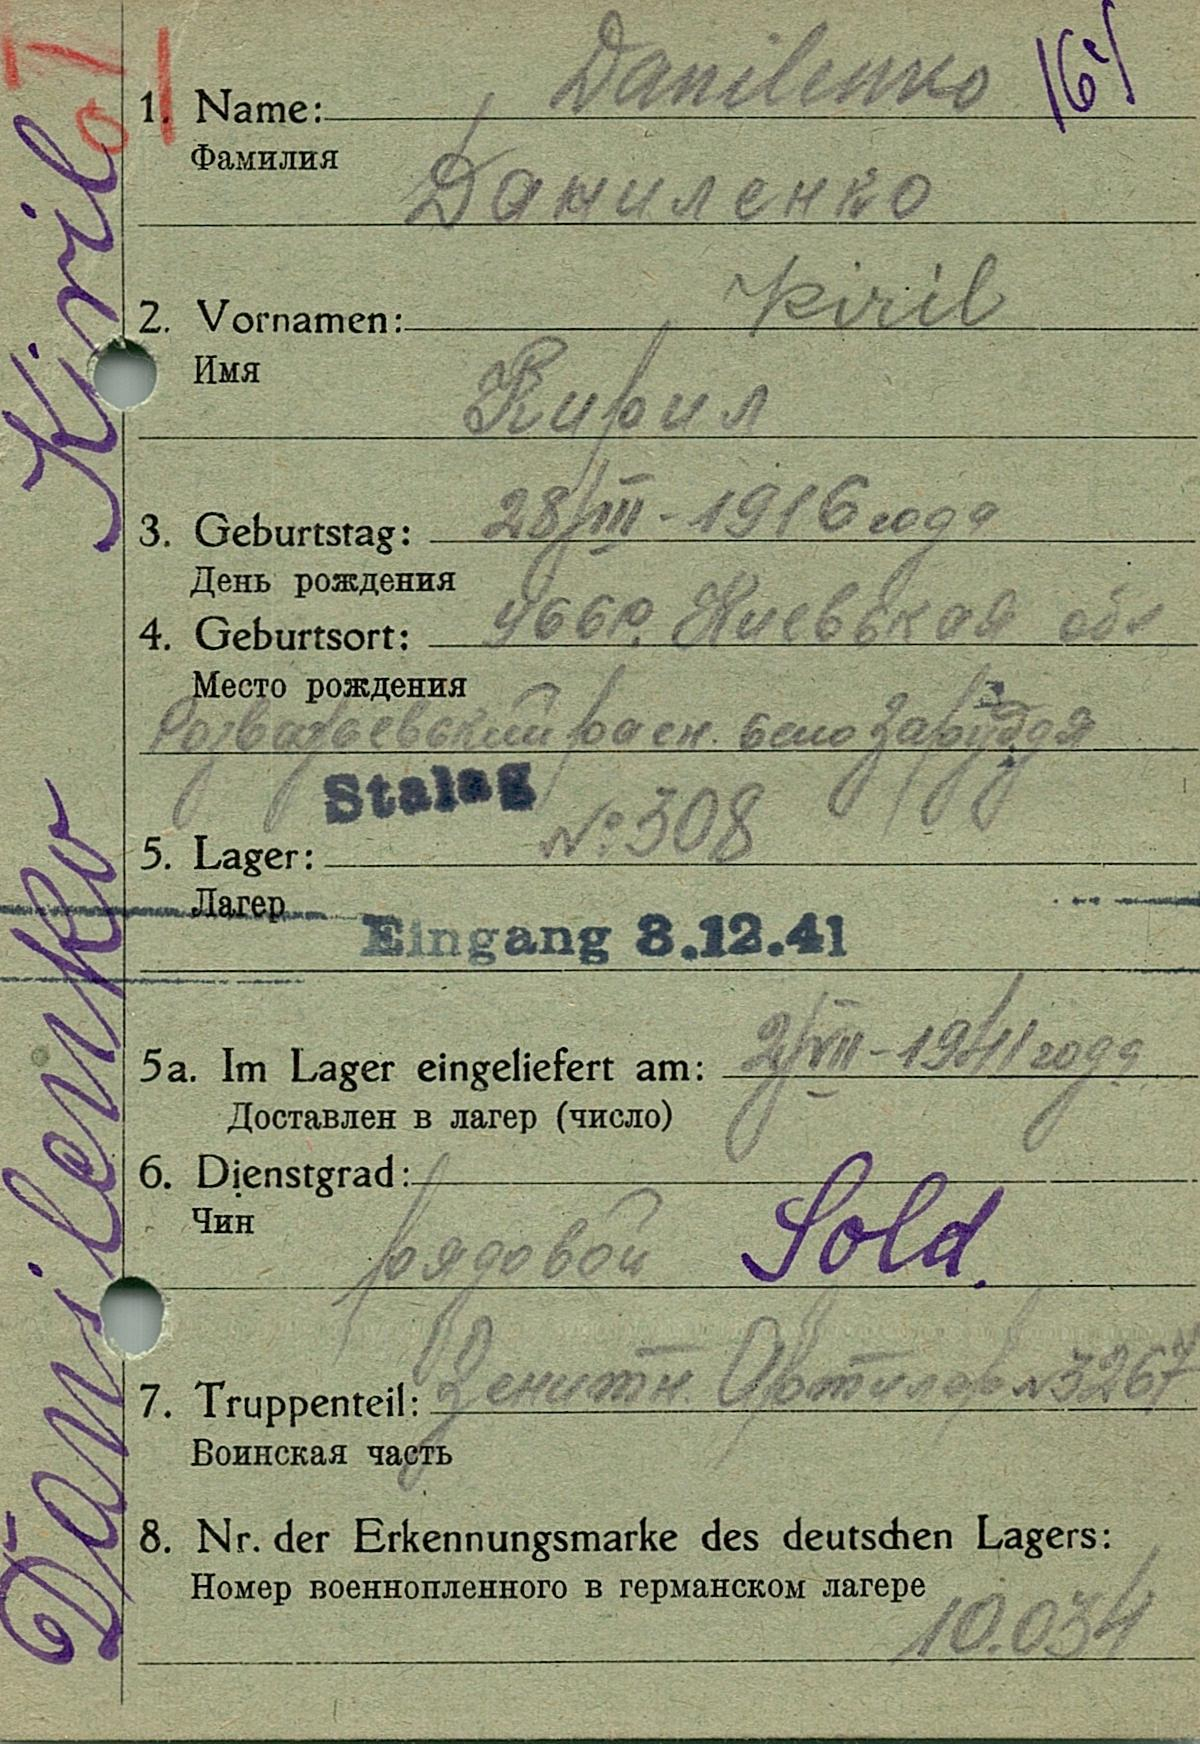 Danilenko Kiril
164
1. Name: Danilenko
Фамилия
Даниленко
2. Vornamen: Kiril
Имя
Кирил
3. Geburtstag: 28/III - 1916 года
День рождения
4. Geburtsort: УССР. Киевская обл
Место рождения
село Заруддя
Stalag
5. Lager: № 308
Лагер
Eingang 8.12.41
5a. Im Lager eingeliefert am: 2/VIII - 1941 года
Доставлен в лагер (число)
6. Dienstgrad:
Чин
рядовой Sold.
7. Truppenteil: Зенитн. Артилер № 3267
Воинская часть
8. Nr. der Erkennungsmarke des deutschen Lagers:
Номер военнопленного в германском лагере
10.034